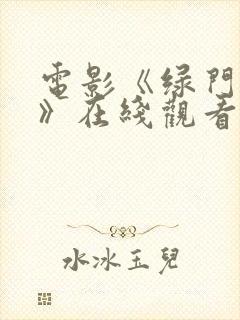 電影《绿門
》在綫觀看
水冰玉兒